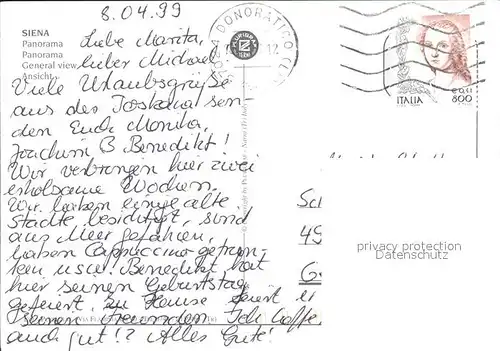 8.04.99
SIENA
Panorama
Panorama
General view
Ansicht
Liebe Marita,
lieber Michael,
Viele Urlaubsgrüße
aus der Toskana sen
den Euch Monika,
Joachim & Benedikt!
Wir verbringen hier zwei
erholsame Wochen.
Wir haben einige alte
Städte besichtigt, sind
aus Meer gefahren,
haben Cappuccino getrun-
ken usw. Benedikt hat
hier seinen Geburtstag
gefeiert, zu Hause feiert er
seinen Freunden. Ich hoffe,
auch gut!? Alles Gute!
DONORATICO
12
ITALIA
800
Sc
49
G
privacy protection
Datenschutz